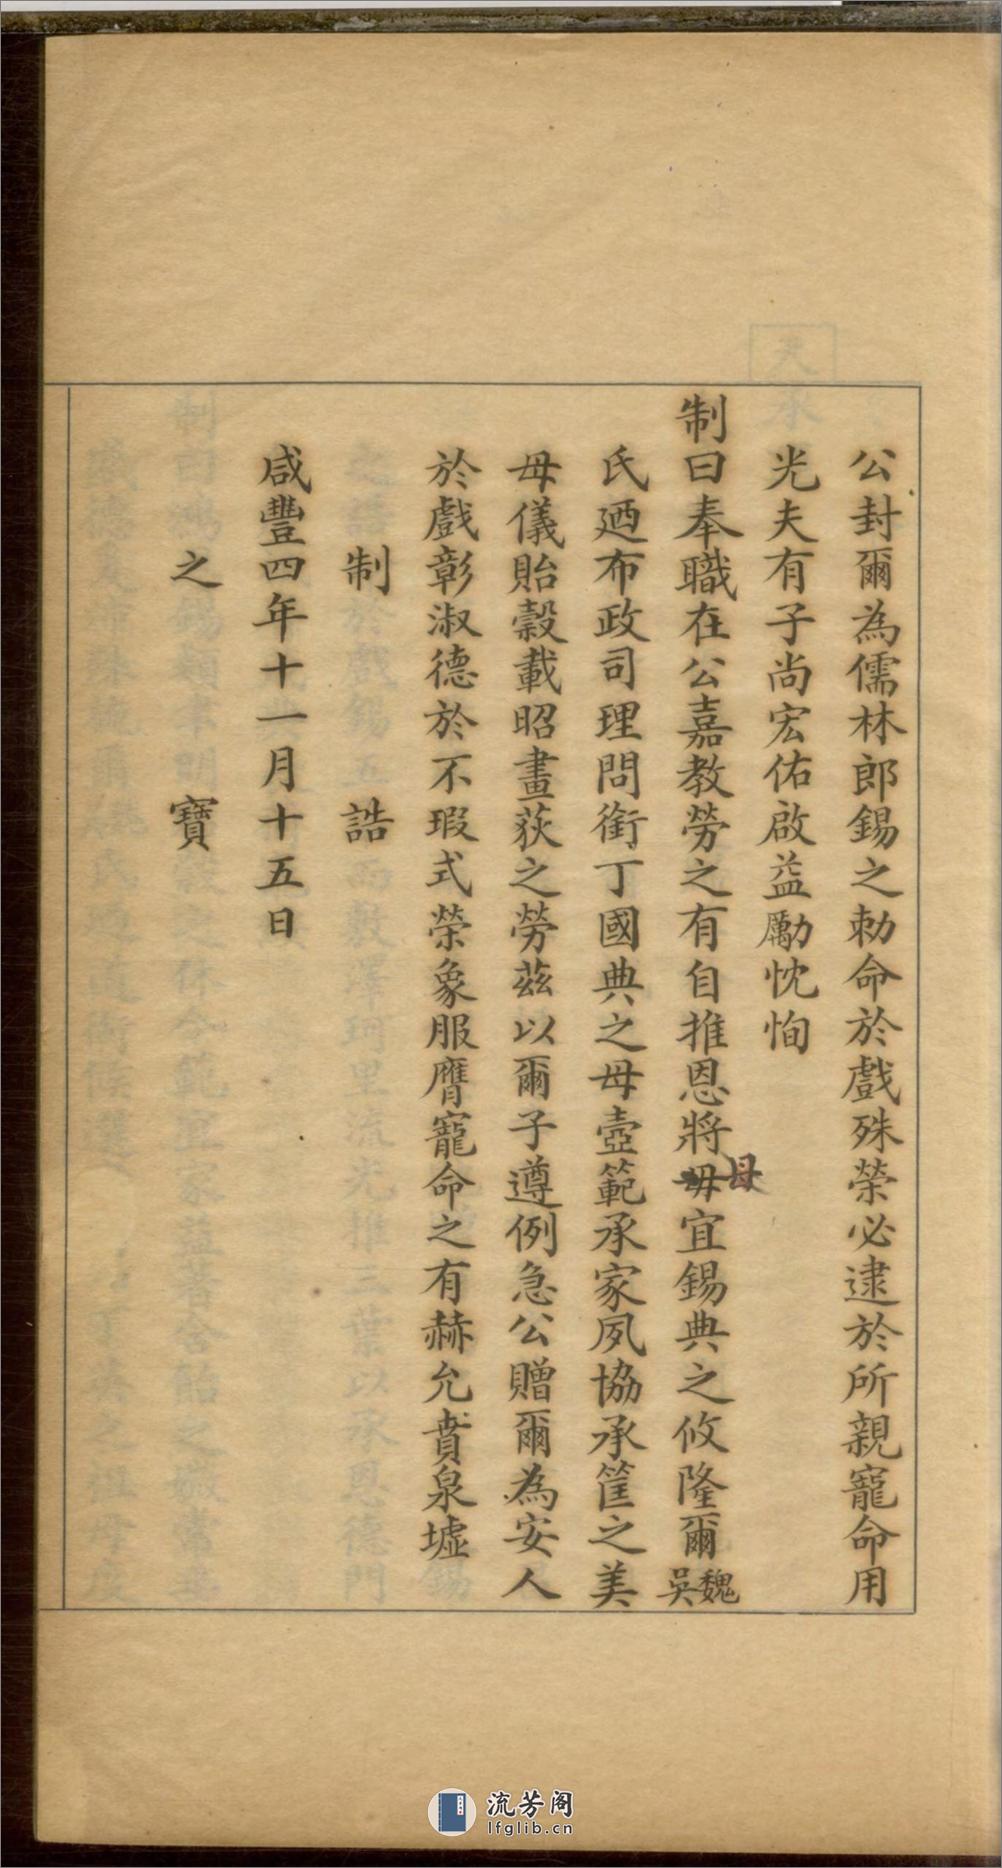 公封爾為儒林郎錫之勅命於戲殊榮必逮於所親寵命用
光夫有子尚宏佑啟益勵忱恂
制曰奉職在公嘉教勞之有自推恩將母宜錫典之攸隆爾魏吳
氏迺布政司理問銜丁國典之母壼範承家夙協承筐之美
母儀貽穀載昭畫荻之勞茲以爾子遵例急公贈爾為安人
於戲彰淑德於不瑕式榮象服膺寵命之有赫允賁泉墟
制誥
咸豐四年十一月十五日
之寶
流芳阁
lfglib.cn